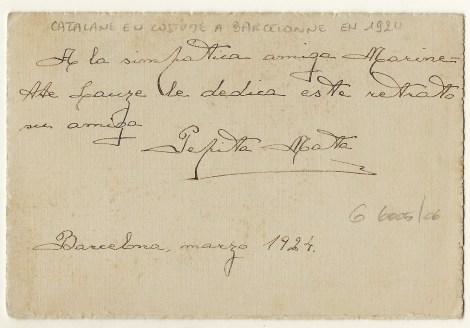 CATALANE EN COSTUME A BARCELONNE EN 1924
A la simpatica amiga Marine-
tte Lauze le dedica este retrato
su amiga
Pepita Matta
G 6005/06
Barcelona, marzo 1924.